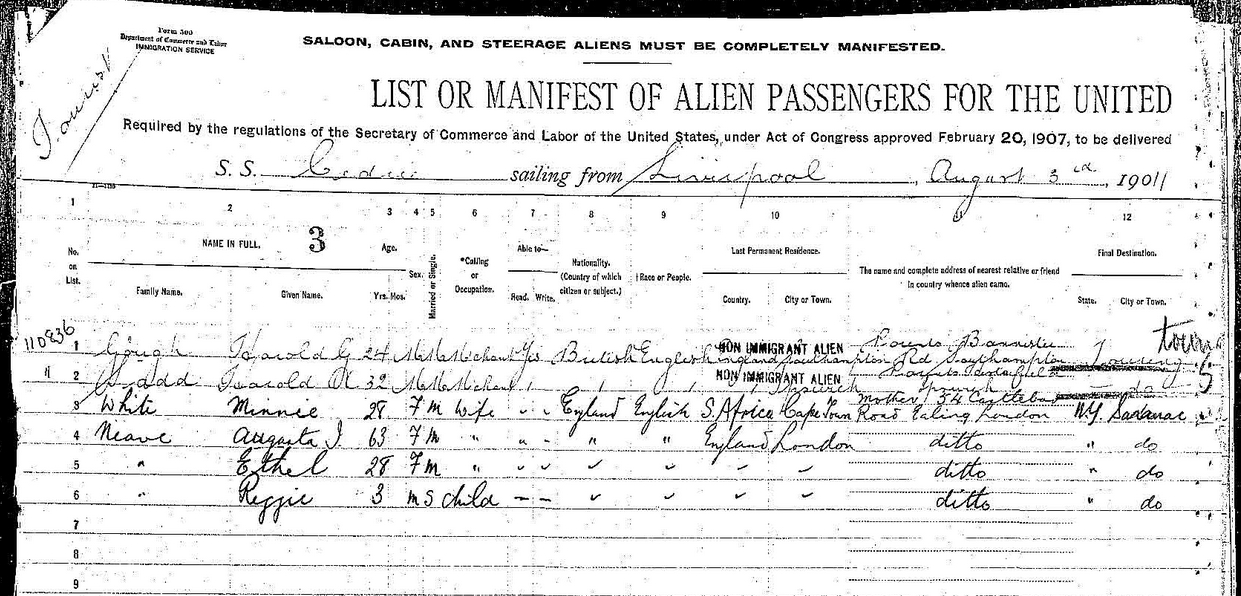 Form 500
Department of Commerce and Labor
IMMIGRATION SERVICE
Tourist
SALOON, CABIN, AND STEERAGE ALIENS MUST BE COMPLETELY MANIFESTED.
LIST OR MANIFEST OF ALIEN PASSENGERS FOR THE UNITED
Required by the regulations of the Secretary of Commerce and Labor of the United States, under Act of Congress approved February 20, 1907, to be delivered
S. S. Cedric sailing from Liverpool, August 3rd, 1911
1 2 3 4 5 6 7 8 9 10 11 12
No. on List. NAME IN FULL. 3 Age. Sex. Married or Single. *Calling or Occupation. Able to— Nationality. (Country of which citizen or subject.) †Race or People. Last Permanent Residence. The name and complete address of nearest relative or friend in country whence alien came. Final Destination.
Family Name. Given Name. Yrs. Mos. Read. Write. Country. City or Town. State. City or Town.
110836
1 Gough Harold G 24 M Merchant Yes British English NON IMMIGRANT ALIEN England Southampton Bannister Rd Southampton Touring
2 Harold 32 M NON IMMIGRANT ALIEN Ipswich Ipswich do
3 White Minnie 28 F M Wife " " England English S. Africa Cape Town Mother 54 Road Ealing London N.Y. Saranac
4 Neave Augusta J. 63 F M " " " " England London ditto " do
5 " Ethel 28 F M " ditto " do
6 " Reggie 3 m s child – – ditto " do
7
8
9